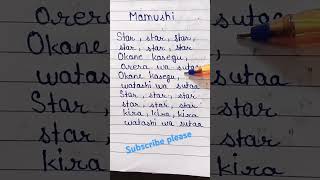 Mamushi
Star, star, star,
star, star, star
Okane kasegu,
orera wa sutar
Okane kasegu,
watashi wa sutaa
Star, star, star
star, star, star
kira, kira, kira
watashi wa sutaa
Subscribe please
star
star
kira